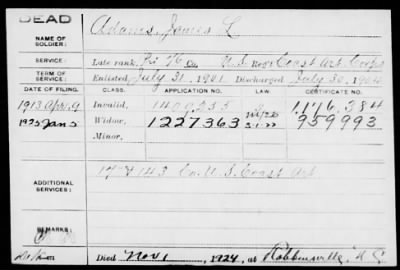 DEAD
NAME OF SOLDIER: Adams, James L.
SERVICE: Late rank, Co. U.S. Reg't Coast Art Corps
TERM OF SERVICE: Enlisted July 31, 1901 Discharged July 30, 1904
DATE OF FILING. CLASS. APPLICATION NO. LAW. CERTIFICATE NO.
1913 Apr. 9 Invalid, 1409255 1176384
1925 Jan 5 Widow, 1227363 959993
Minor,
ADDITIONAL SERVICES: 143 Co. U.S. Coast Art
REMARKS:
Died Nov 1, 1924, at Robbinsville, N.C.